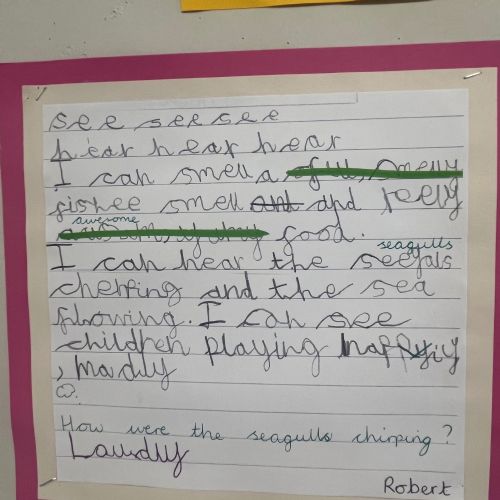 see see see
hear hear hear
I can smell a smelly
fishee smell and and relly
awesome
food.
seagulls
I can hear the seegals
cherping and the sea
flowing. I can see
children playing happyiy
, madly
How were the seagulls chirping?
Laurdly
Robert